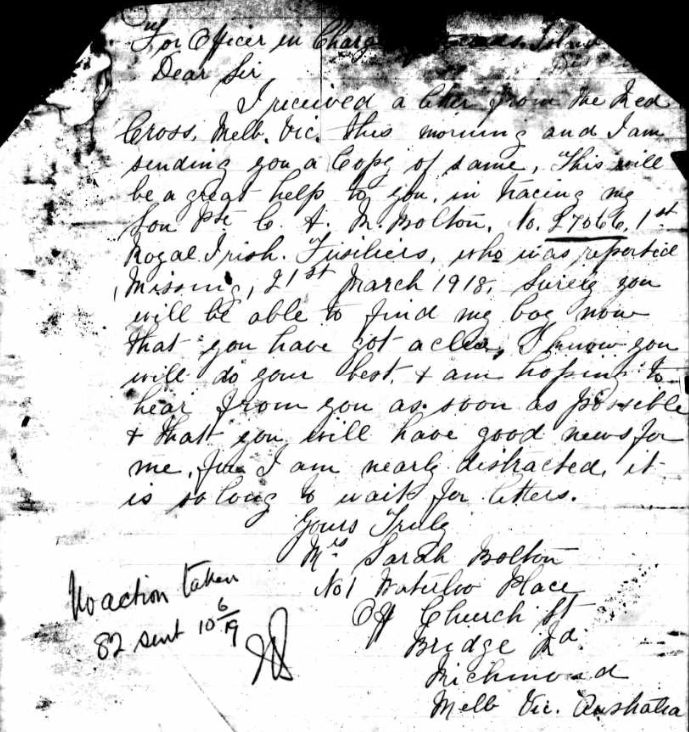 For Officer in Charge Records.
Dear Sir
I received a letter from the Red
Cross, Melb. Vic. this morning and I am
sending you a Copy of same, This will
be a great help to you, in tracing my
Son Pte C. A. R. Bolton, No. 27066, 1st
Royal Irish. Fusiliers, who was reported
Missing, 21st March 1918, Surely you
will be able to find my boy now
that you have got a clue, I know you
will do your best, & am hoping to
hear from you as soon as possible
& that you will have good news for
me, for I am nearly distracted, it
is so long to wait for letters.
Yours Truly
Mrs Sarah Bolton
No 1 Waterloo Place
Off Church St
Bridge Rd
Richmond
Melb Vic. Australia
No action taken
82 sent 10/6/19